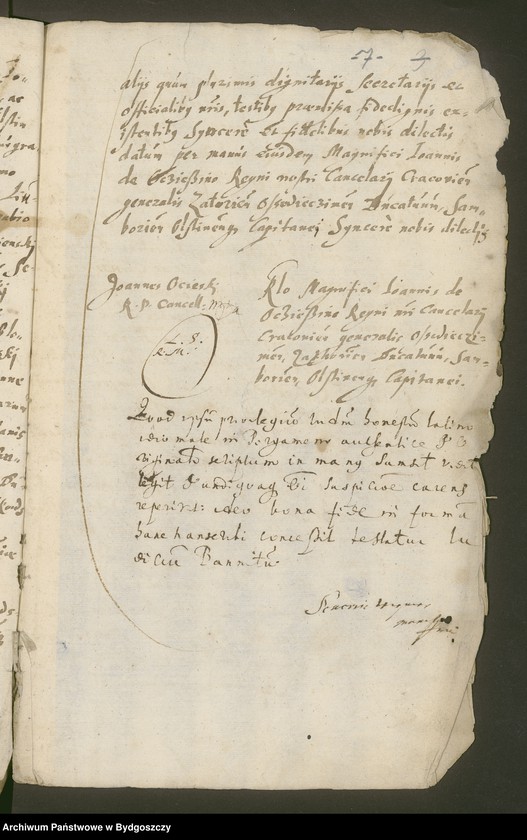 -7- 3
alijs quam plurimis dignitarijs Secretarijs et
officialibus nris, testibus praemissa fide dignis ex-
istentibus Syncere et fidelibus nobis dilectis
datum per manus eiusdem Magnifici Ioannis
de Ocziessino Regni nostri Cancelarij Cracovien
generalis Zatorien Osswieczimen Ducatuum, Sam-
borien Olstinensq Capitanei Syncere nobis dilecti
Joannes Ocieski
R. P. Cancell.
L. S.
R. M.
Rlo Magnifici Ioannis de
Ocziessino Regni nri Cancelarij
Cracovien generalis Osswieczi-
men, Zathorien Ducatuum, Sam-
borien, Olstinensq Capitanei.
Quod ipsum privilegium honestum latino
idiomate in Pergameno authentice et
originale scriptum in manu sumsit vidit
legit et undiquaq omni suspicione carens
reperiret ideo bona fide in formam
hanc transcribi concessit testatur Iu
dicium Bannitum